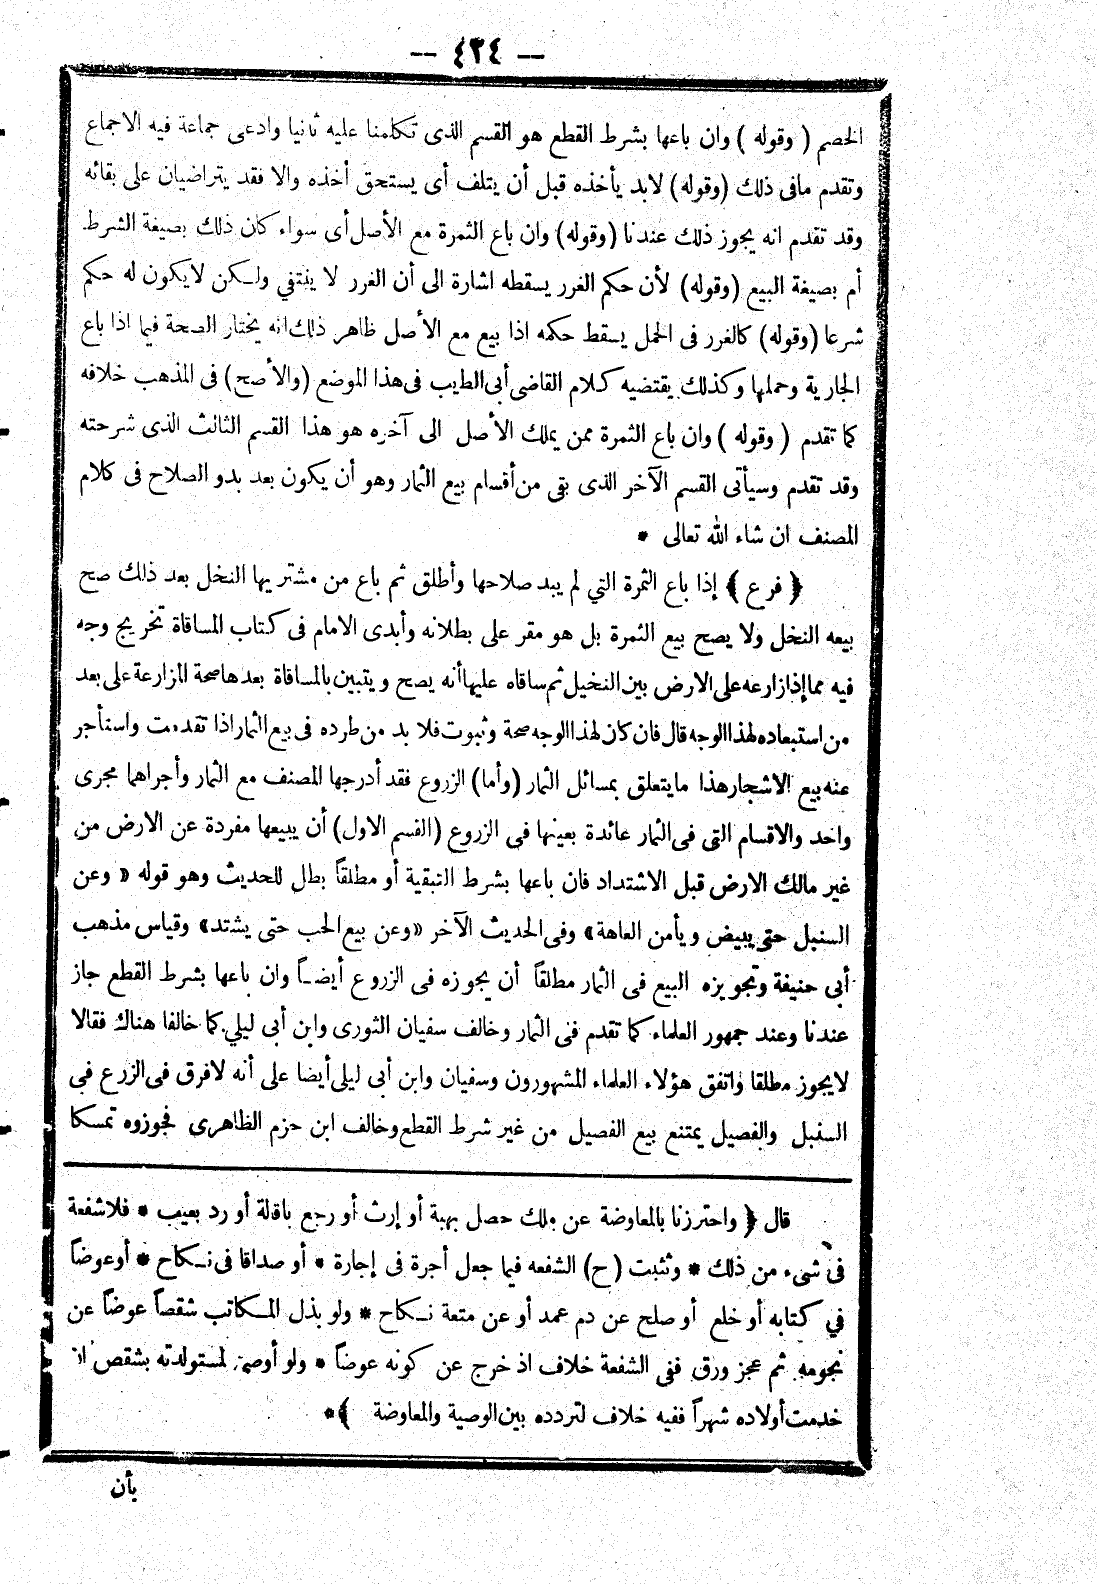 — ٤٣٤ —
الخصم ( وقوله ) وان باعها بشرط القطع هو القسم الذى تكلمنا عليه ثانيا وادعى جماعة فيه الاجماع
وتقدم مافى ذلك (وقوله) لابد يأخذه قبل أن يتلف أى يستحق أخذه والا فقد يتراضيان على بقائه
وقد تقدم انه يجوز ذلك عندنا (وقوله) وان باع الثمرة مع الأصل أى سواء كان ذلك بصيغة الشرط
أم بصيغة البيع (وقوله) لأن حكم الغرر يسقطه اشارة الى أن الغرر لا ينتفي ولكن لايكون له حكم
شرعا (وقوله) كالغرر فى الحمل يسقط حكمه اذا بيع مع الأصل ظاهر ذلك انه يختار الصحة فيما اذا باع
الجارية وحملها وكذلك يقتضيه كلام القاضى أبى الطيب فى هذا الموضع (والأصح) فى المذهب خلافه
كما تقدم ( وقوله ) وان باع الثمرة ممن يملك الأصل الى آخره هو هذا القسم الثالث الذى شرحته
وقد تقدم وسيأتى القسم الآخر الذى بقى من أقسام بيع الثمار وهو أن يكون بعد بدو الصلاح فى كلام
المصنف ان شاء الله تعالى *
﴿ فرع ﴾ إذا باع الثمرة التي لم يبد صلاحها وأطلق ثم باع من مشتريها النخل بعد ذلك صح
بيعه النخل ولا يصح بيع الثمرة بل هو مقر على بطلانه وأبدى الامام فى كتاب المساقاة تخريج وجه
فيه مما إذا زارعه على الارض بين النخيل ثم ساقاه عليها أنه يصح ويتبين بالمساقاة بعدها صحة المزارعة على بعد
من استبعاده لهذا الوجه قال فان كان لهذا الوجه صحة وثبوت فلا بد من طرده فى بيع الثمار اذا تقدمت واستأجر
عنه بيع الاشجار هذا مايتعلق بمسائل الثمار (وأما) الزروع فقد أدرجها المصنف مع الثمار وأجراهما مجرى
واحد والاقسام التى فى الثمار عائدة بعينها فى الزروع (القسم الاول) أن يبيعها مفردة عن الارض من
غير مالك الارض قبل الاشتداد فان باعها بشرط التبقية أو مطلقاً بطل للحديث وهو قوله « وعن
السنبل حتى يبيض ويأمن العاهة» وفى الحديث الآخر «وعن بيع الحب حتى يشتد» وقياس مذهب
أبى حنيفة وتجويزه البيع فى الثمار مطلقاً أن يجوزه فى الزروع أيضاً وان باعها بشرط القطع جاز
عندنا وعند جمهور العلماء كما تقدم فى الثمار وخالف سفيان الثورى وابن أبى ليلي كما خالفا هناك فقالا
لايجوز مطلقا واتفق هؤلاء العلماء المشهورون وسفيان وابن أبى ليلى أيضا على أنه لافرق فى الزرع فى
السنبل والفصيل يمتنع بيع الفصيل من غير شرط القطع وخالف ابن حزم الظاهرى فجوزوه تمسكا
قال ﴿ واحترزنا بالمعاوضة عن ملك حصل بهبة أو إرث أو رجع باقالة أو رد بعيب * فلاشفعة
فى شىء من ذلك * وتثبت (ح) الشفعه فيما جعل أجرة فى إجارة * أو صداقا فى نكاح * أوعوضاً
في كتابه أو خلع أو صلح عن دم عمد أو عن متعة نكاح * ولو بذل المكاتب شقصاً عوضاً عن
نجومه ثم عجز ورق ففى الشفعة خلاف اذ خرج عن كونه عوضاً * ولو أوصى لمستولدته بشقص ان
خدمت أولاده شهراً ففيه خلاف لتردده بين الوصية والمعاوضة ﴾*
بأن